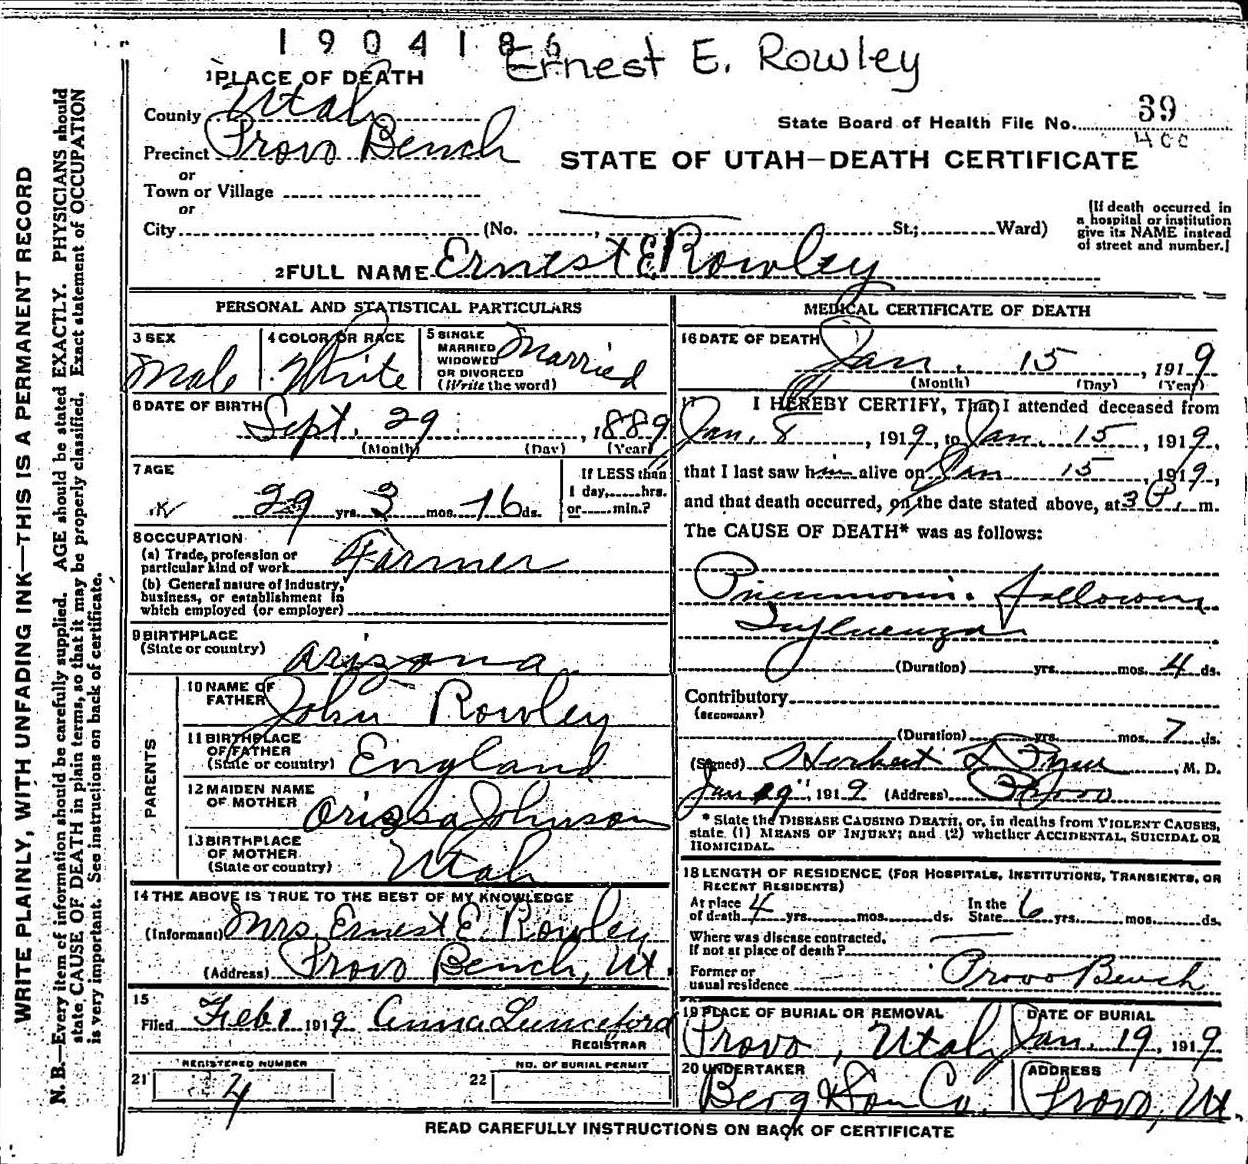 1904186
Ernest E. Rowley
1 PLACE OF DEATH
County Utah
State Board of Health File No. 39
Precinct Provo Bench
STATE OF UTAH—DEATH CERTIFICATE
or
Town or Village
or
City (No. , St.; Ward)
[If death occurred in
a hospital or institution
give its NAME instead
of street and number.]
2 FULL NAME Ernest E Rowley
PERSONAL AND STATISTICAL PARTICULARS
3 SEX
Male
4 COLOR OR RACE
White
5 SINGLE
MARRIED
WIDOWED
OR DIVORCED
(Write the word)
Married
6 DATE OF BIRTH
Sept. 29, 1889
(Month) (Day) (Year)
7 AGE
29 yrs. 3 mos. 16 ds.
If LESS than
1 day, hrs.
or min.?
8 OCCUPATION
(a) Trade, profession or
particular kind of work Farmer
(b) General nature of Industry,
business, or establishment in
which employed (or employer)
9 BIRTHPLACE
(State or country) Arizona
PARENTS
10 NAME OF
FATHER John Rowley
11 BIRTHPLACE
OF FATHER
(State or country) England
12 MAIDEN NAME
OF MOTHER Johnson
13 BIRTHPLACE
OF MOTHER
(State or country) Utah
14 THE ABOVE IS TRUE TO THE BEST OF MY KNOWLEDGE
(Informant) Mrs. Ernest E. Rowley
(Address) Provo Bench, Ut.
15
Filed Feb 1 1919 Anna Lunceford
REGISTRAR
REGISTERED NUMBER
21 4
NO. OF BURIAL PERMIT
22
MEDICAL CERTIFICATE OF DEATH
16 DATE OF DEATH
Jan. 15, 1919
(Month) (Day) (Year)
17 I HEREBY CERTIFY, That I attended deceased from
Jan. 8, 1919, to Jan. 15, 1919,
that I last saw him alive on Jan 15, 1919,
and that death occurred, on the date stated above, at 3 P. m.
The CAUSE OF DEATH* was as follows:
Pneumonia following
Influenza
(Duration) yrs. mos. 4 ds.
Contributory
(SECONDARY)
(Duration) yrs. mos. 7 ds.
(Signed) Herbert , M. D.
Jan 1919 (Address) Provo
* State the DISEASE CAUSING DEATH, or, in deaths from VIOLENT CAUSES,
state (1) MEANS OF INJURY; and (2) whether ACCIDENTAL, SUICIDAL OR
HOMICIDAL.
18 LENGTH OF RESIDENCE (FOR HOSPITALS, INSTITUTIONS, TRANSIENTS, OR
RECENT RESIDENTS)
At place
of death 4 yrs. mos. ds.
In the
State 6 yrs. mos. ds.
Where was disease contracted,
If not at place of death?
Former or
usual residence Provo Bench
19 PLACE OF BURIAL OR REMOVAL
Provo, Utah
DATE OF BURIAL
Jan. 19, 1919
20 UNDERTAKER
Berg & Son Co.
ADDRESS
Provo, Ut.
READ CAREFULLY INSTRUCTIONS ON BACK OF CERTIFICATE
WRITE PLAINLY, WITH UNFADING INK—THIS IS A PERMANENT RECORD
N. B.—Every item of information should be carefully supplied. AGE should be stated EXACTLY. PHYSICIANS should
state CAUSE OF DEATH in plain terms, so that it may be properly classified. Exact statement of OCCUPATION
is very important. See instructions on back of certificate.